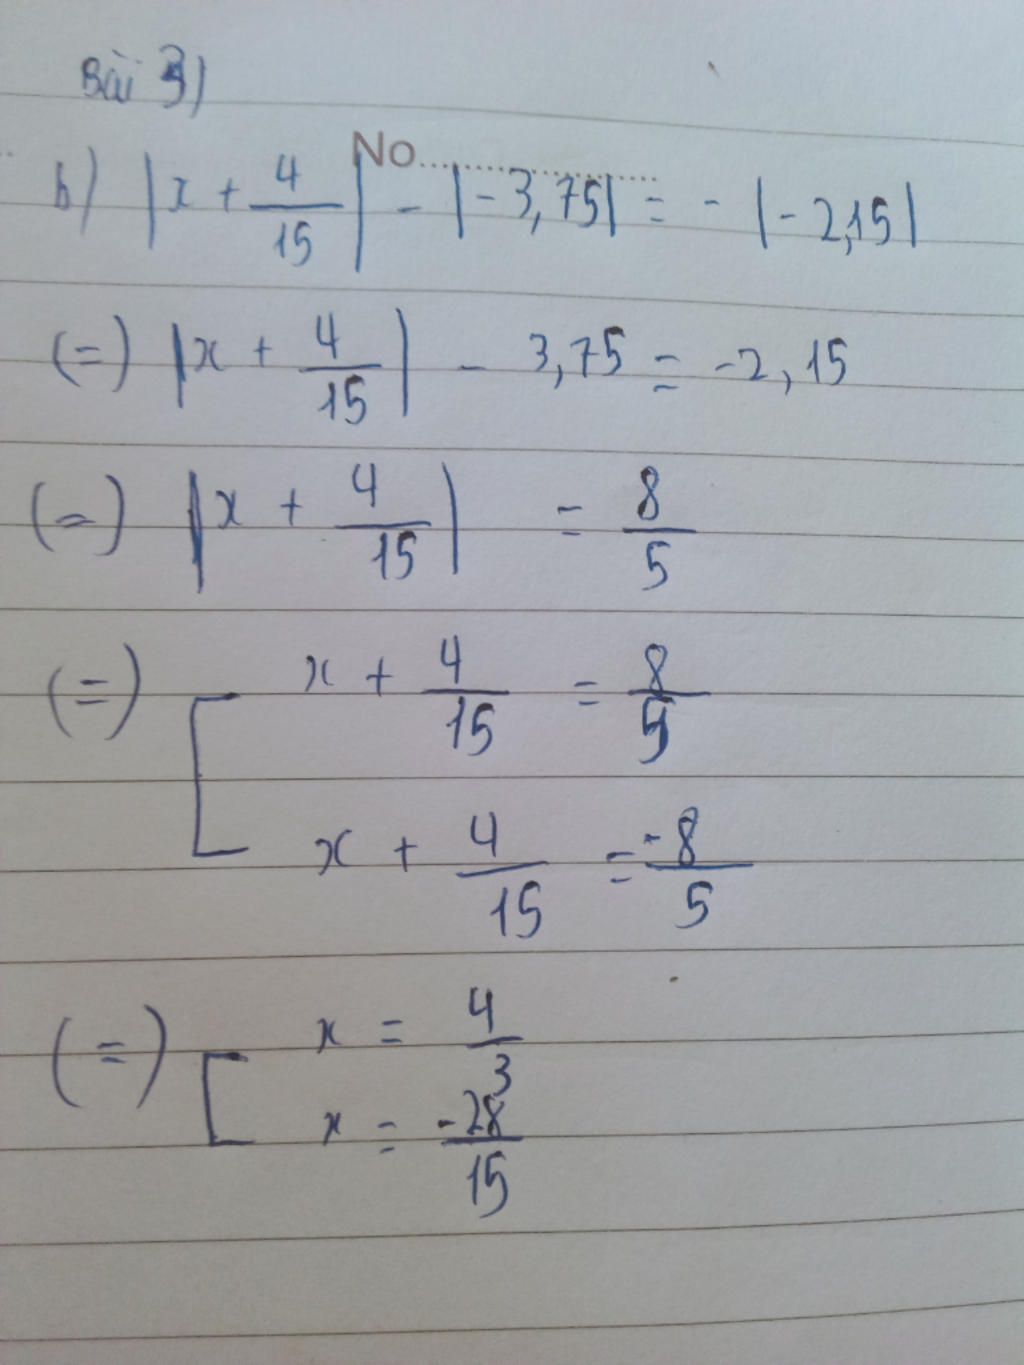 Bài 3)
No
b) |x + 4/15| - |-3,75| = - |-2,15|
(=) |x + 4/15| - 3,75 = -2,15
(=) |x + 4/15| = 8/5
(=) [ x + 4/15 = 8/5
x + 4/15 = -8/5
(=) [ x = 4/3
x = -28/15